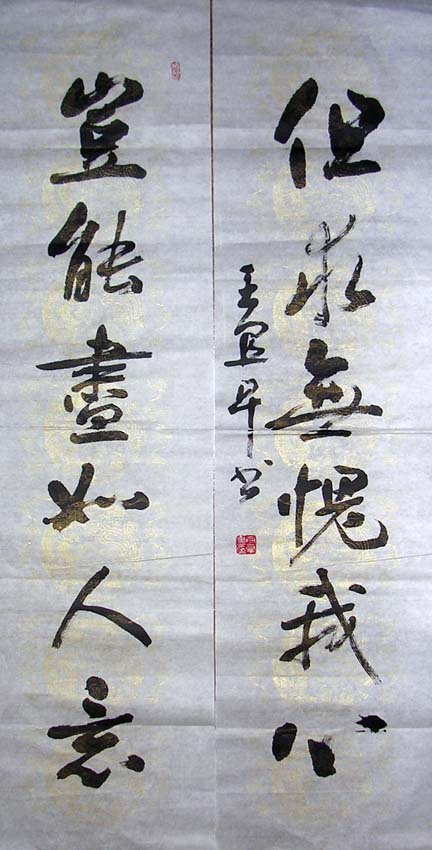 豈能盡如人意
但求無愧我心
王宜早书